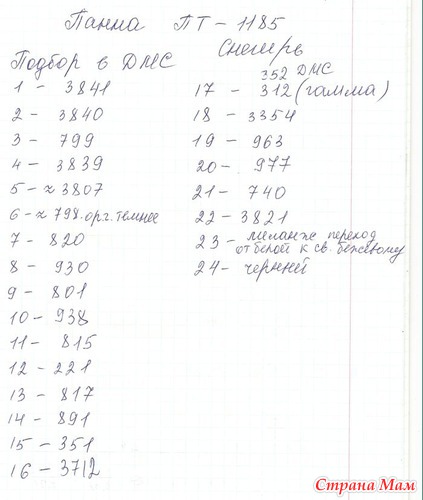 Панна ПТ-1185
Подбор в ДМС
1 - 3841
2 - 3840
3 - 799
4 - 3839
5 - ≈ 3807
6 - ≈ 798. орг. темнее
7 - 820
8 - 930
9 - 801
10 - 938
11 - 815
12 - 221
13 - 817
14 - 891
15 - 351
16 - 3712
Снегирь
352 ДМС
17 - 312 (гамма)
18 - 3354
19 - 963
20 - 977
21 - 740
22 - 3821
23 - меланж переход
от белой к св. бежевому
24 - черный
Страна Мам